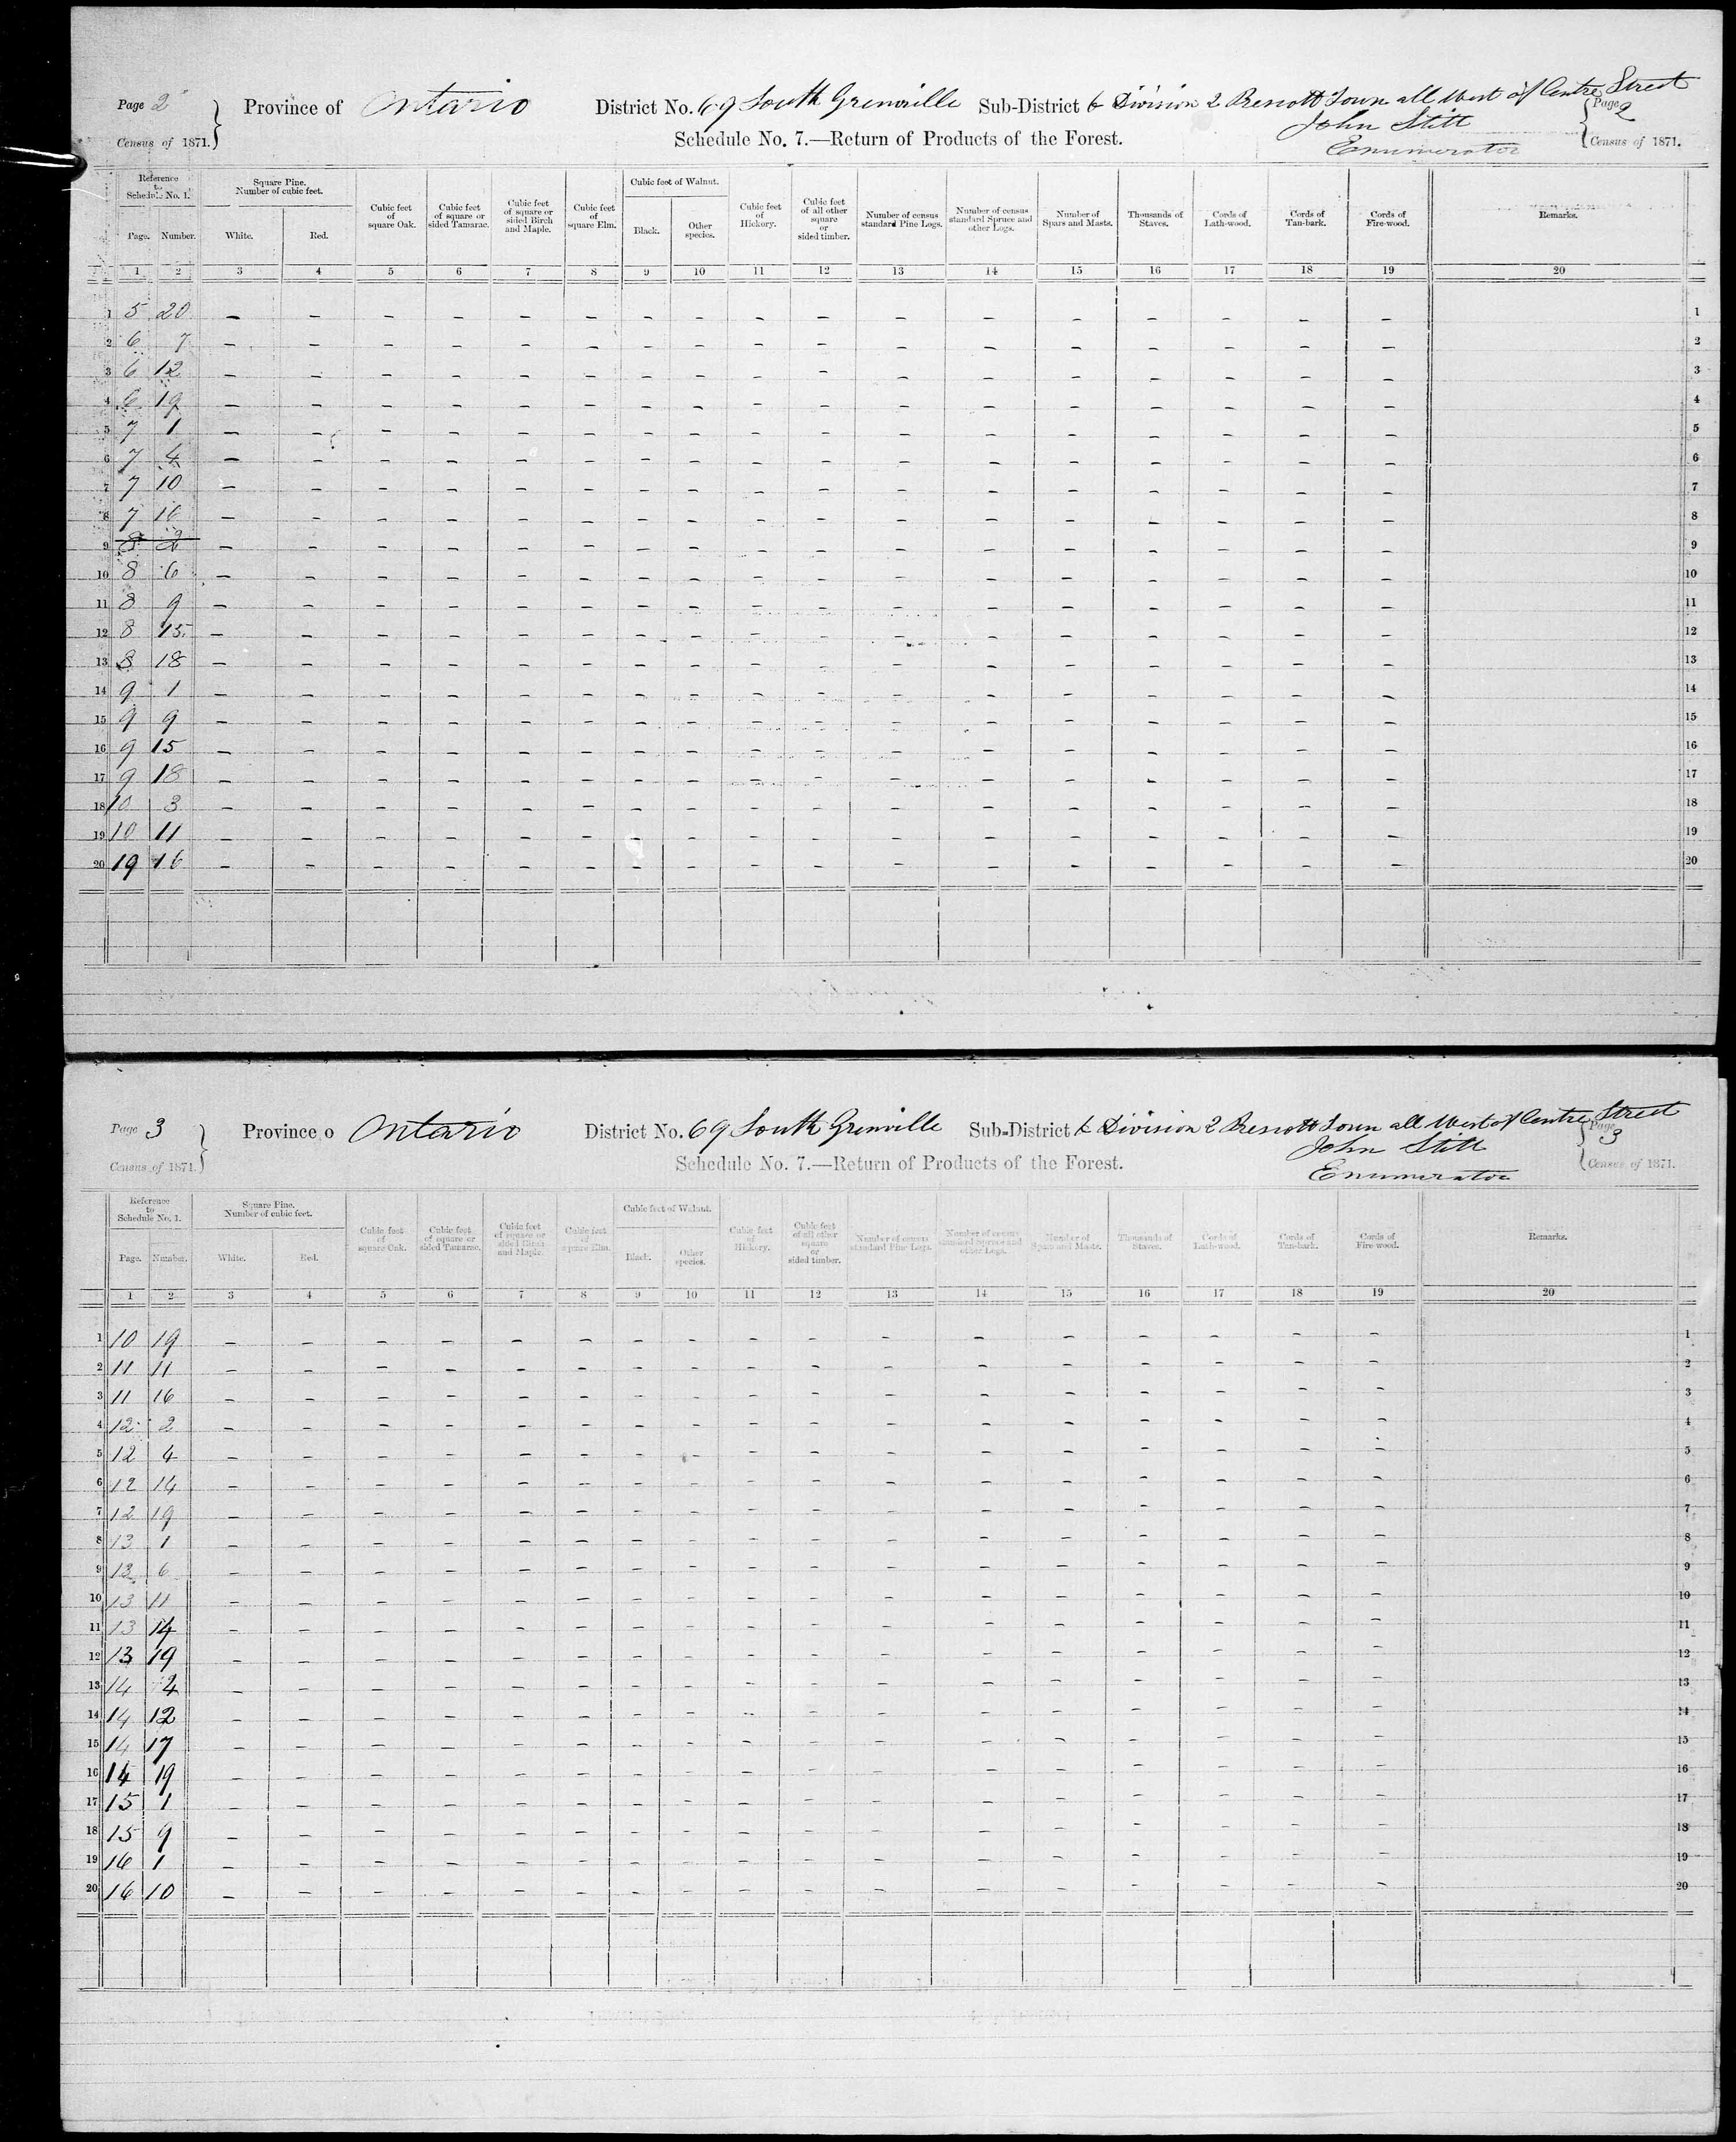 Page 2 Province of Ontario District No. 69 South Grenville Sub-District b Division 2 Prescott Town all West of Centre Street Page 2
Census of 1871. Schedule No. 7.—Return of Products of the Forest. John Stitt Census of 1871.
Enumerator
Reference to Schedule No. 1. Square Pine. Number of cubic feet. Cubic feet of square Oak. Cubic feet of square or sided Tamarac. Cubic feet of square or sided Birch and Maple. Cubic feet of square Elm. Cubic feet of Walnut. Cubic feet of Hickory. Cubic feet of all other square or sided timber. Number of census standard Pine Logs. Number of census standard Spruce and other Logs. Number of Spars and Masts. Thousands of Staves. Cords of Lath-wood. Cords of Tan-bark. Cords of Fire-wood. Remarks.
Page. Number. White. Red. Black. Other species.
1 2 3 4 5 6 7 8 9 10 11 12 13 14 15 16 17 18 19 20
1 5 20 – – – – – – – – – – – – – – – – – 1
2 6 7 – – – – – – – – – – – – – – – – – 2
3 6 12 – – – – – – – – – – – – – – – – – 3
4 6 19 – – – – – – – – – – – – – – – – – 4
5 7 1 – – – – – – – – – – – – – – – – – 5
6 7 4 – – – – – – – – – – – – – – – – – 6
7 7 10 – – – – – – – – – – – – – – – – – 7
8 7 16 – – – – – – – – – – – – – – – – – 8
9 8 2 – – – – – – – – – – – – – – – – – 9
10 8 6 – – – – – – – – – – – – – – – – – 10
11 8 9 – – – – – – – – – – – – – – – – – 11
12 8 15 – – – – – – – – – – – – – – – – – 12
13 8 18 – – – – – – – – – – – – – – – – – 13
14 9 1 – – – – – – – – – – – – – – – – – 14
15 9 9 – – – – – – – – – – – – – – – – – 15
16 9 15 – – – – – – – – – – – – – – – – – 16
17 9 18 – – – – – – – – – – – – – – – – – 17
18 10 3 – – – – – – – – – – – – – – – – – 18
19 10 11 – – – – – – – – – – – – – – – – – 19
20 19 16 – – – – – – – – – – – – – – – – – 20
Page 3 Province o Ontario District No. 69 South Grenville Sub-District b Division 2 Prescott Town all West of Centre Street Page 3
Census of 1871. Schedule No. 7.—Return of Products of the Forest. John Stitt Census of 1871.
Enumerator
Reference to Schedule No. 1. Square Pine. Number of cubic feet. Cubic feet of square Oak. Cubic feet of square or sided Tamarac. Cubic feet of square or sided Birch and Maple. Cubic feet of square Elm. Cubic feet of Walnut. Cubic feet of Hickory. Cubic feet of all other square or sided timber. Number of census standard Pine Logs. Number of census standard Spruce and other Logs. Number of Spars and Masts. Thousands of Staves. Cords of Lath-wood. Cords of Tan-bark. Cords of Fire-wood. Remarks.
Page. Number. White. Red. Black. Other species.
1 2 3 4 5 6 7 8 9 10 11 12 13 14 15 16 17 18 19 20
1 10 19 – – – – – – – – – – – – – – – – – 1
2 11 11 – – – – – – – – – – – – – – – – – 2
3 11 16 – – – – – – – – – – – – – – – – – 3
4 12 2 – – – – – – – – – – – – – – – – – 4
5 12 4 – – – – – – – – – – – – – – – – – 5
6 12 14 – – – – – – – – – – – – – – – – – 6
7 12 19 – – – – – – – – – – – – – – – – – 7
8 13 1 – – – – – – – – – – – – – – – – – 8
9 13 6 – – – – – – – – – – – – – – – – – 9
10 13 11 – – – – – – – – – – – – – – – – – 10
11 13 14 – – – – – – – – – – – – – – – – – 11
12 13 19 – – – – – – – – – – – – – – – – – 12
13 14 4 – – – – – – – – – – – – – – – – – 13
14 14 12 – – – – – – – – – – – – – – – – – 14
15 14 17 – – – – – – – – – – – – – – – – – 15
16 14 19 – – – – – – – – – – – – – – – – – 16
17 15 1 – – – – – – – – – – – – – – – – – 17
18 15 9 – – – – – – – – – – – – – – – – – 18
19 16 1 – – – – – – – – – – – – – – – – – 19
20 16 10 – – – – – – – – – – – – – – – – – 20